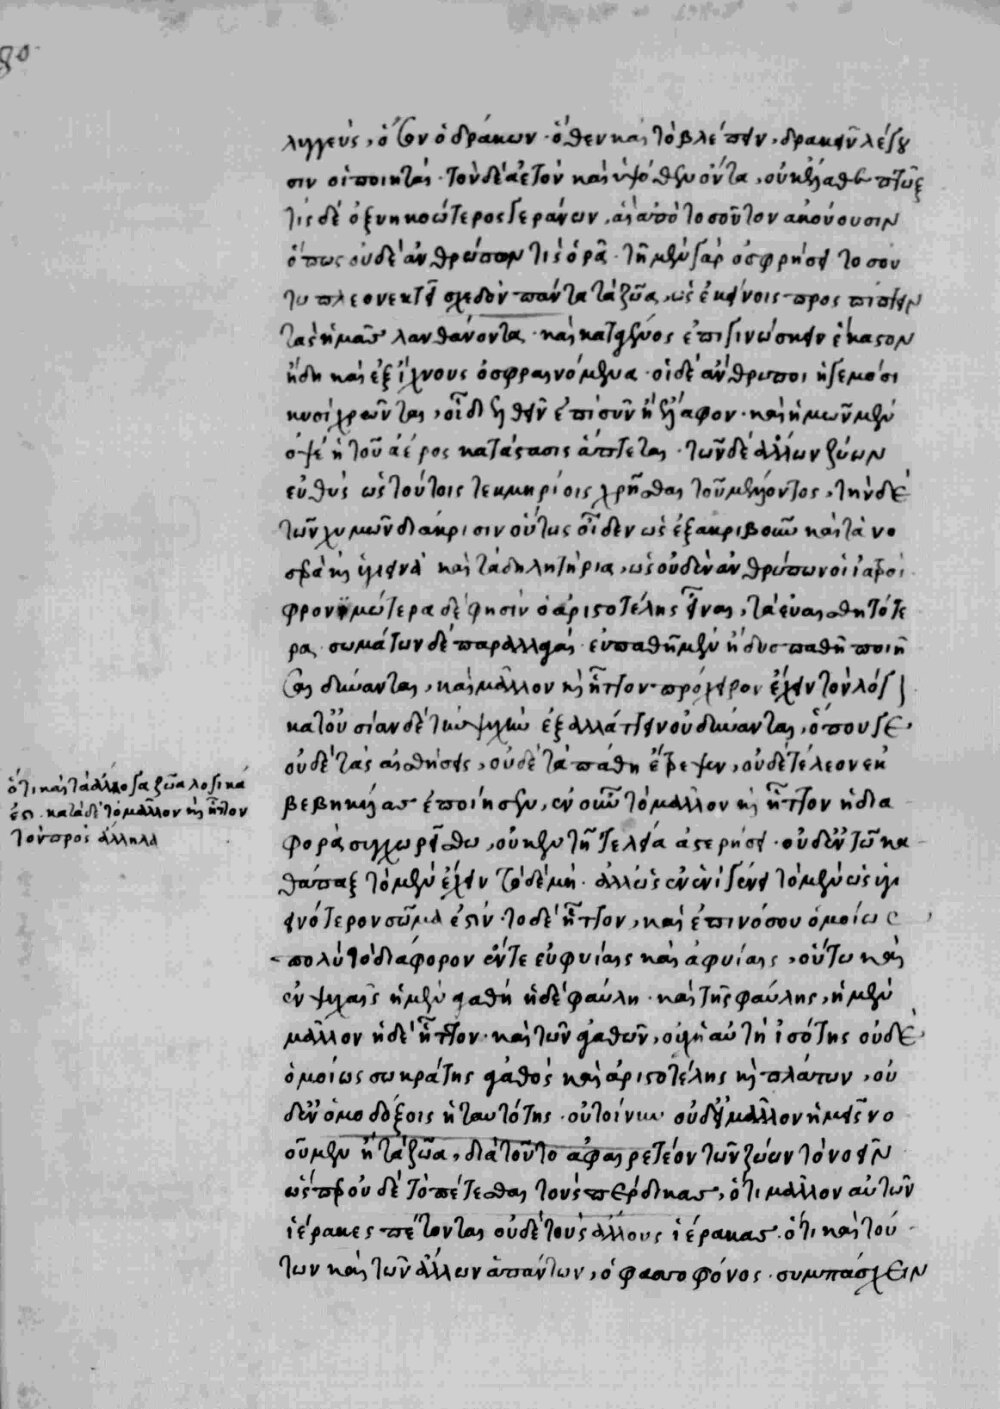 80
λιγγεὺς, ὅσον ὁ δράκων · ὅθεν καὶ τὸ βλέπειν, δρακεῖν λέγου
σιν οἱ ποιηταί · τὸν δὲ ἀετὸν καὶ ὑψόθεν ὄντα, οὐκ ἔλαθε πτώξ
τίς δὲ ὀξυηκοώτερος γεράνων, αἳ ἀπὸ τοσοῦτον ἀκούουσιν
ὅπως οὐδὲ ἀνθρώπων τὶς ὁρᾶ · τῇ μὲν γὰρ ὀσφρήσει τοσού
τω πλεονεκτεῖ σχεδὸν πάντα τὰ ζῶα, ὡς ἐκείνοις προσπίπτειν
τὰς ἡμᾶς λανθάνοντα · καὶ κατὰ γένος ἐπιγινώσκειν ἕκαστον
ἤδη καὶ ἐξ ἴχνους ὀσφραινόμενα · οἱ δὲ ἄνθρωποι ἡγεμόσι
κυσὶ χρῶνται, εἰ δεῖ ἐλθεῖν ἐπὶ σῦν ἢ ἔλαφον · καὶ ἡμῶν μὲν
ὀψὲ ἡ τοῦ ἀέρος κατάστασις ἅπτεται · τῶν δὲ ἄλλων ζώων
εὐθὺς ὡς τούτοις τεκμηρίοις χρῆσθαι τοῦ μέλλοντος, τὴν δὲ
τῶν χυμῶν διάκρισιν οὕτως οἶδεν ὡς ἐξακριβοῦν καὶ τὰ νο
σερὰ καὶ ὑγιεινὰ καὶ τὰ δηλητήρια, ὡς οὐδὲν ἀνθρώπων οἱ ἰατροί ·
φρονιμώτερα δέ φησιν ὁ ἀριστοτέλης εἶναι, τὰ εὐαισθητότε
ρα · σωμάτων δὲ παραλλαγαὶ εὐπαθῆ μὲν ἢ δυσπαθῆ ποιῆ
σαι δύνανται, καὶ μᾶλλον καὶ ἧττον πρόχειρον ἔχειν τὸν λόγ
κατ' οὐσίαν δὲ τὴν ψυχὴν ἐξαλλάττειν οὐ δύνανται, ὅπου γε
οὐδὲ τὰς αἰσθήσεις, οὐδὲ τὰ πάθη ἔτρεψαν, οὐδὲ τέλεον ἐκ
βεβηκυίας ἐποίησαν, ἐν οὖν τὸ μᾶλλον καὶ ἧττον ἡ δια
φορὰ συγχωρείσθω, οὐκ ἐν τῇ τελεία ἀστερήσει · οὐδ' ἐν τῶ κα
θάπαξ τὸ μὲν ἔχειν τὸ δὲ μή · ἀλλ' ὡς ἐν ἑνὶ γένει τὸ μὲν ὡς ὑγι
εινότερον σῶμα ἐστὶν · τὸ δὲ ἧττον, καὶ ἐπὶ νόσου ὁμοίως
πολὺ τὸ διάφορον ἔν τε εὐφυίαις καὶ ἀφυίαις, οὕτω καὶ
ἐν ψυχαῖς ἡ μὲν ἀγαθὴ ἡ δὲ φαύλη · καὶ τῆς φαύλης, ἡ μὲν
μᾶλλον ἡ δὲ ἧττον · καὶ τῶν ἀγαθῶν, οὐχὶ αὐτὴ ἰσότης οὐδὲ
ὁμοίως σωκράτης ἀγαθὸς καὶ ἀριστοτέλης καὶ πλάτων, οὐ
δ' ἐν ὁμοδόξοις ἡ ταυτότης · οὐ τοίνυν οὐδ' εἰ μᾶλλον ἡμεῖς νο
οῦμεν ἢ τὰ ζῶα, διὰ τοῦτο ἀφαιρετέον τῶν ζώων τὸ νοεῖν
ὥσπερ οὐδὲ τὸ πέτεσθαι τοὺς πέρδικας, ὅτι μᾶλλον αὐτῶν
ἱέρακες πέτονται οὐδὲ τοὺς ἄλλους ἱέρακας · ὅτι καὶ τού
των καὶ τῶν ἄλλων ἁπάντων, ὁ φασσοφόνος · συμπάσχειν
ὅτι καὶ τὰ ἄλογα ζῶα λογικά
ἐστι · κατὰ δὲ τὸ μᾶλλον καὶ ἧττον
τὸν πρὸς ἄλληλα